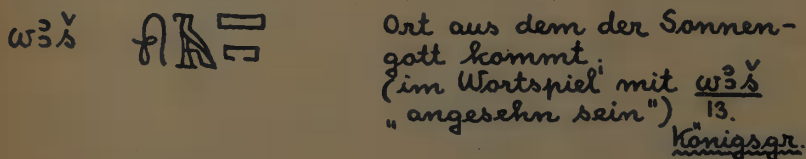 wꜣš 𓍯𓄿𓈙𓈇 Ort aus dem der Sonnen-
gott kommt.
(im Wortspiel mit wꜣš
„angesehn sein") 13.
Königsgr.